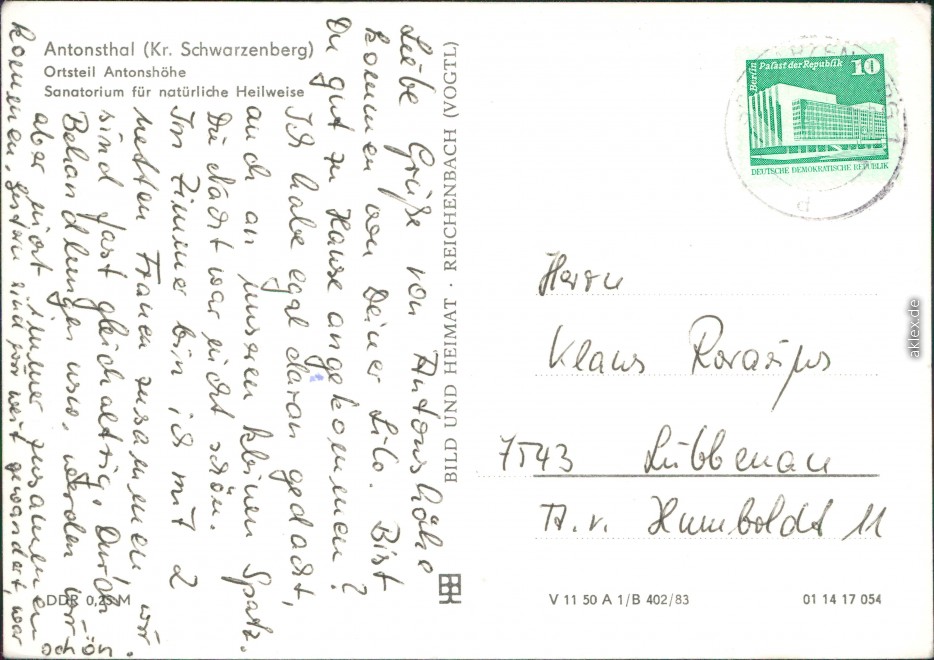 Antonsthal (Kr. Schwarzenberg)
Ortsteil Antonshöhe
Sanatorium für natürliche Heilweise
Liebe Grüße von Antonshöhe
kommen von Deiner Lilo. Bist
Du gut zu Hause angekommen?
Ich habe egal daran gedacht,
auch an unseren kleinen Spatz.
Die Nacht war nicht schön.
Im Zimmer bin ich mit 2
netten Frauen zusammen wir
sind fast gleichaltrig. Durch
Behandlungen usw. werden wir
aber nicht immer zusammen
kommen, gestern sind wir weit gewandert, war
schön.
BILD UND HEIMAT · REICHENBACH (VOGTL)
Berlin Palast der Republik 10
DEUTSCHE DEMOKRATISCHE REPUBLIK
Herrn
Klaus
7543 Lübbenau
A. v. Humboldt 11
DDR 0,25 M
V 11 50 A 1/B 402/83
01 14 17 054
aklex.de